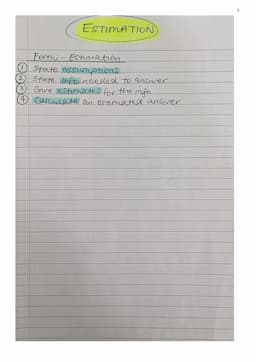 ESTIMATION
Fermi - Estimation
① State assumptions
② State info needed to answer
③ Give estimates for the info
④ Calculate an estimated answer